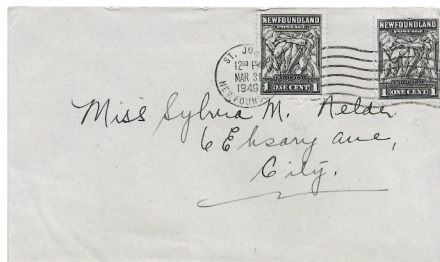 NEWFOUNDLAND
POSTAGE
1 ONE CENT 1
NEWFOUNDLAND
POSTAGE
1 ONE CENT 1
ST. JO
12 30 PM
MAR 3
1949
NEWFOUN
Miss Sylvia M. Nelder
6 Ebsary ave,
City.